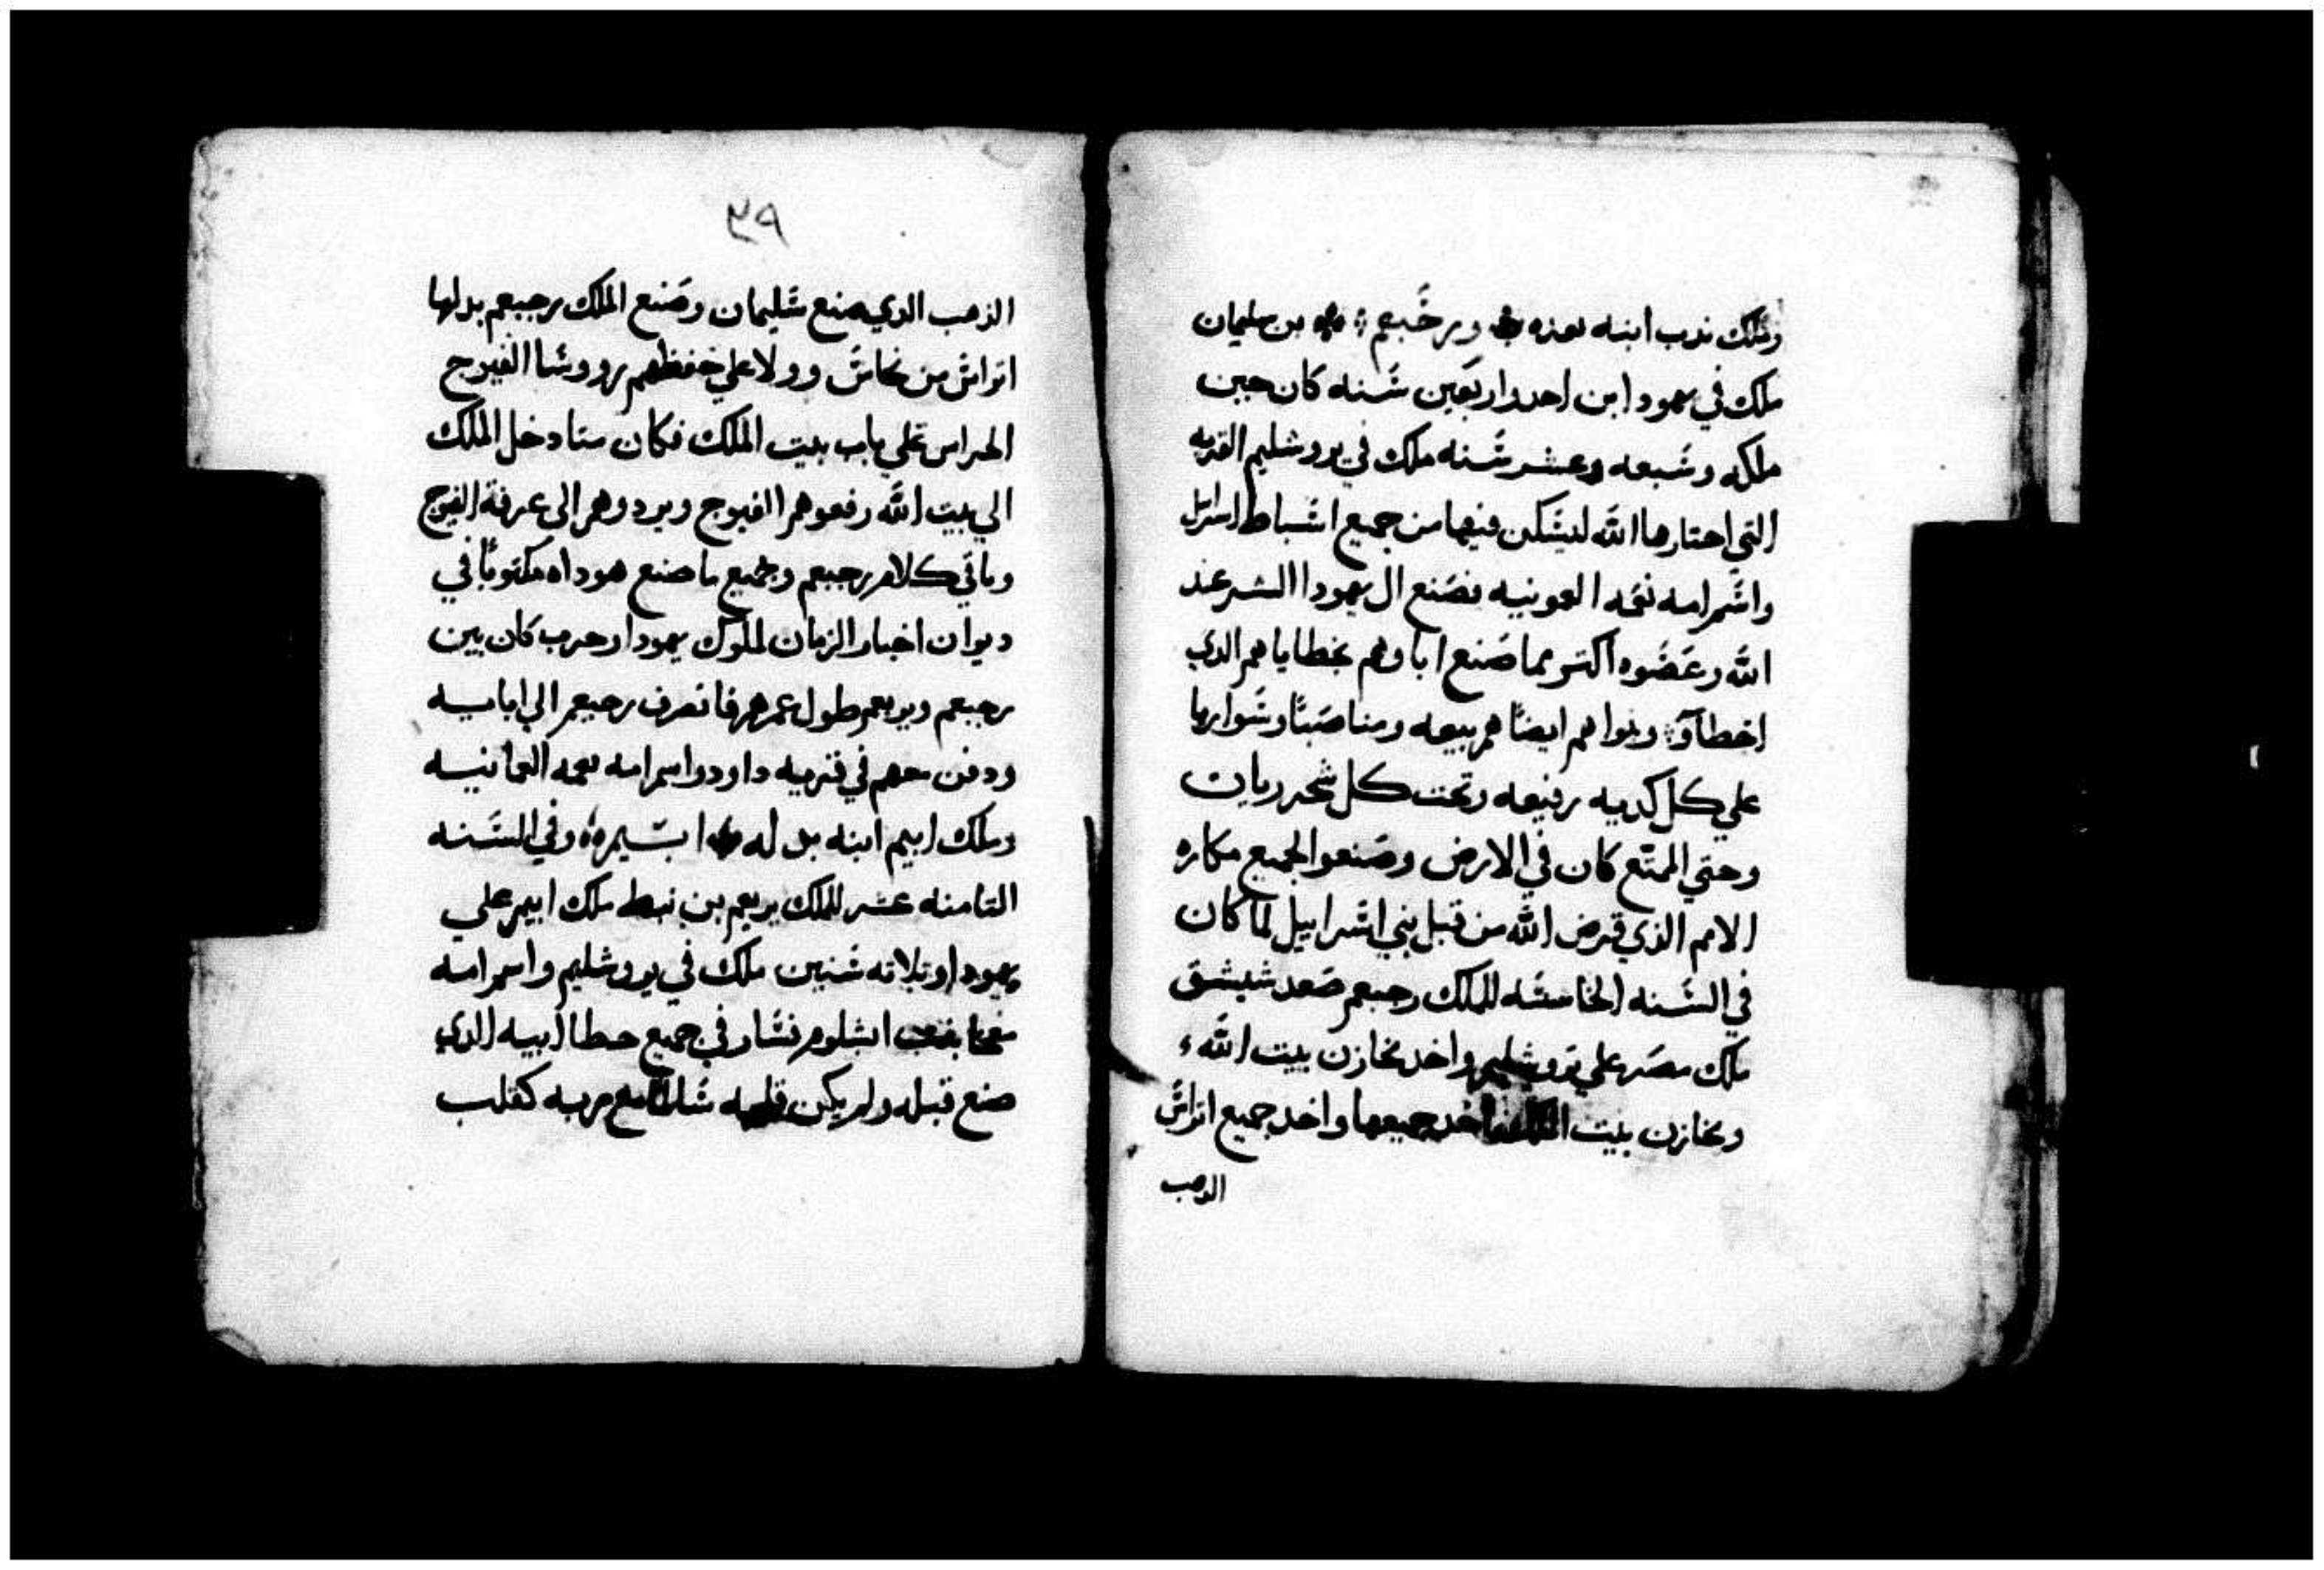 وملك ندب ابنه بعده ورخبعم بن سليمان
ملك في يهودا بن احد واربعين شنه كان حين
ملكه وشبعه وعشر شنه ملك في يروشليم القريه
التي احتارها الله ليشكن فيها من جميع اشباط اسرايل
واشم امه نعمه العمونيه فصنع ال يهودا الشر عند
الله وعضوه اكتر مما صنع اباوهم بخطاياهم الدي
اخطاو وبنوا هم ايضًا هم بيعه ومناصبًا وشواريا
علي كل كديه رفيعه وتحت كل شجر ريان
وحتي المتع كان في الارض وصنعوا الجميع مكاره
الامم الذي قرض الله من قبل بني اشراييل لما كان
في الشنه الخامشه للملك رحبعم صعد شيشق
ملك مصر علي يروشليم واخد مخازن بيت الله
ومخازن بيت الملك فاخد جميعها واخد جميع اتراش
الدهب
٣٩
الذهب الدي صنع شليمان وصنع الملك رحبعم بدلها
اتراش من نحاش وولا علي حفظهم رووشا الفيوج
الحراس علي باب بيت الملك فكان متا دخل الملك
الي بيت الله رفعوهم الفيوج ويردوهم الى غرفة الفيوج
وباقي كلام رحبعم وجميع ما صنع هوداه مكتوبًا في
ديوان اخبار الزمان لملوك يهودا وحرب كان بين
رحبعم ويربعم طول عمرهم فانصرف رحبعم الي ابايه
ودفن معهم في قريه داود واسم امه نعمه العمانيه
وملك ابيم ابنه بدله وفي الشنه
التامنه عشر للملك يربعم بن نبط ملك ابيم علي
يهودا وتلاته شنين ملك في يروشليم واسم امه
معكا بنت ابشلوم فشار في جميع خطا ابيه الدي
صنع قبله ولم يكن قلبه شالما مع ربه كقلب